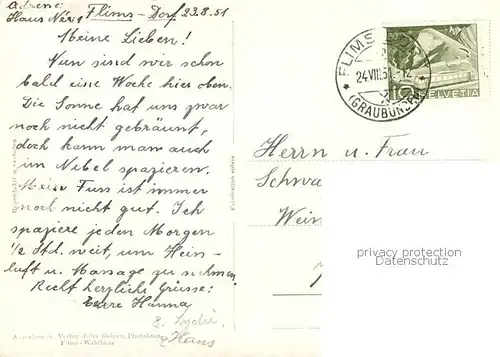 Adresse:
Haus Flims-Dorf 23.8.51
Meine Lieben!
Nun sind wir schon
bald eine Woche hier oben.
Die Sonne hat uns zwar
noch nicht gebräunt,
doch kann man auch
im Nebel spazieren.
Mein Fuss ist immer
noch nicht gut. Ich
spaziere jeden Morgen
1/2 Std. weit, um
luft u. Massage zu nehmen.
Recht herzliche Grüsse:
Hanna
Lydia
Hans
Verlag Jules Geiger, Photohaus
Flims-Waldhaus
Reproduktion verboten
Fabrication suisse
FLIMS
24.VIII.51.-12
(GRAUBÜNDEN)
10 HELVETIA
Herrn u. Frau
Schwa
Wein
privacy protection
Datenschutz